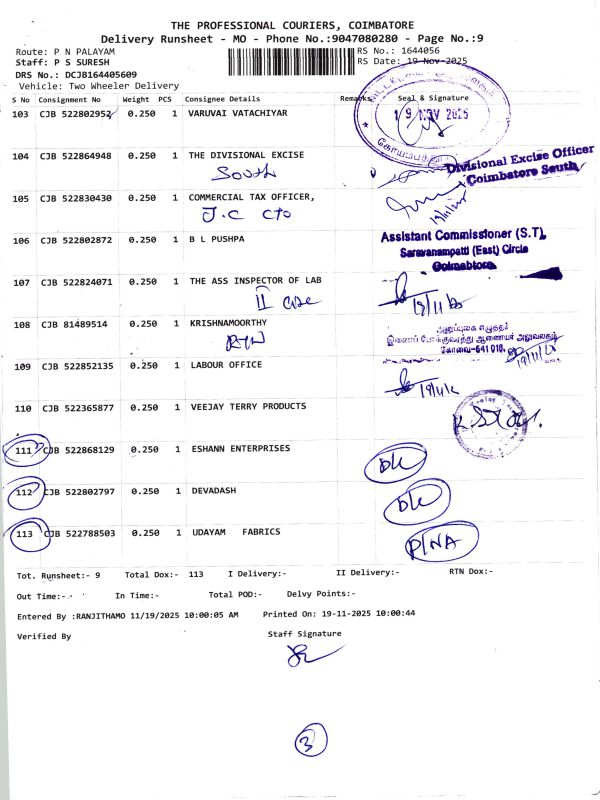 THE PROFESSIONAL COURIERS, COIMBATORE
Delivery Runsheet - MO - Phone No.:9047080280 - Page No.:9
Route: P N PALAYAM
RS No.: 1644056
Staff: P S SURESH
RS Date: 19 Nov-2025
DRS No.: DCJB164405609
Vehicle: Two Wheeler Delivery
S No Consignment No Weight PCS Consignee Details Remarks Seal & Signature
103 CJB 522802952 0.250 1 VARUVAI VATACHIYAR
19 NOV 2025
கோயம்புத்தூர்
104 CJB 522864948 0.250 1 THE DIVISIONAL EXCISE
South
Divisional Excise Officer
Coimbatore South
105 CJB 522830430 0.250 1 COMMERCIAL TAX OFFICER,
J.C CTO
106 CJB 522802872 0.250 1 B L PUSHPA
Assistant Commissioner (S.T),
Saravanampatti (East) Circle
Coimbatore
107 CJB 522824071 0.250 1 THE ASS INSPECTOR OF LAB
II
19/11/25
108 CJB 81489514 0.250 1 KRISHNAMOORTHY
அனுப்புகை எழுத்தர்
இணைப் போக்குவரத்து ஆணையர் அலுவலகம்
கோவை-641 018.
109 CJB 522852135 0.250 1 LABOUR OFFICE
110 CJB 522365877 0.250 1 VEEJAY TERRY PRODUCTS
111 CJB 522868129 0.250 1 ESHANN ENTERPRISES
D/L
112 CJB 522802797 0.250 1 DEVADASH
D/L
113 CJB 522788503 0.250 1 UDAYAM FABRICS
P/NA
Tot. Runsheet:- 9 Total Dox:- 113 I Delivery:- II Delivery:- RTN Dox:-
Out Time:- In Time:- Total POD:- Delvy Points:-
Entered By :RANJITHAMO 11/19/2025 10:00:05 AM Printed On: 19-11-2025 10:00:44
Verified By Staff Signature
3